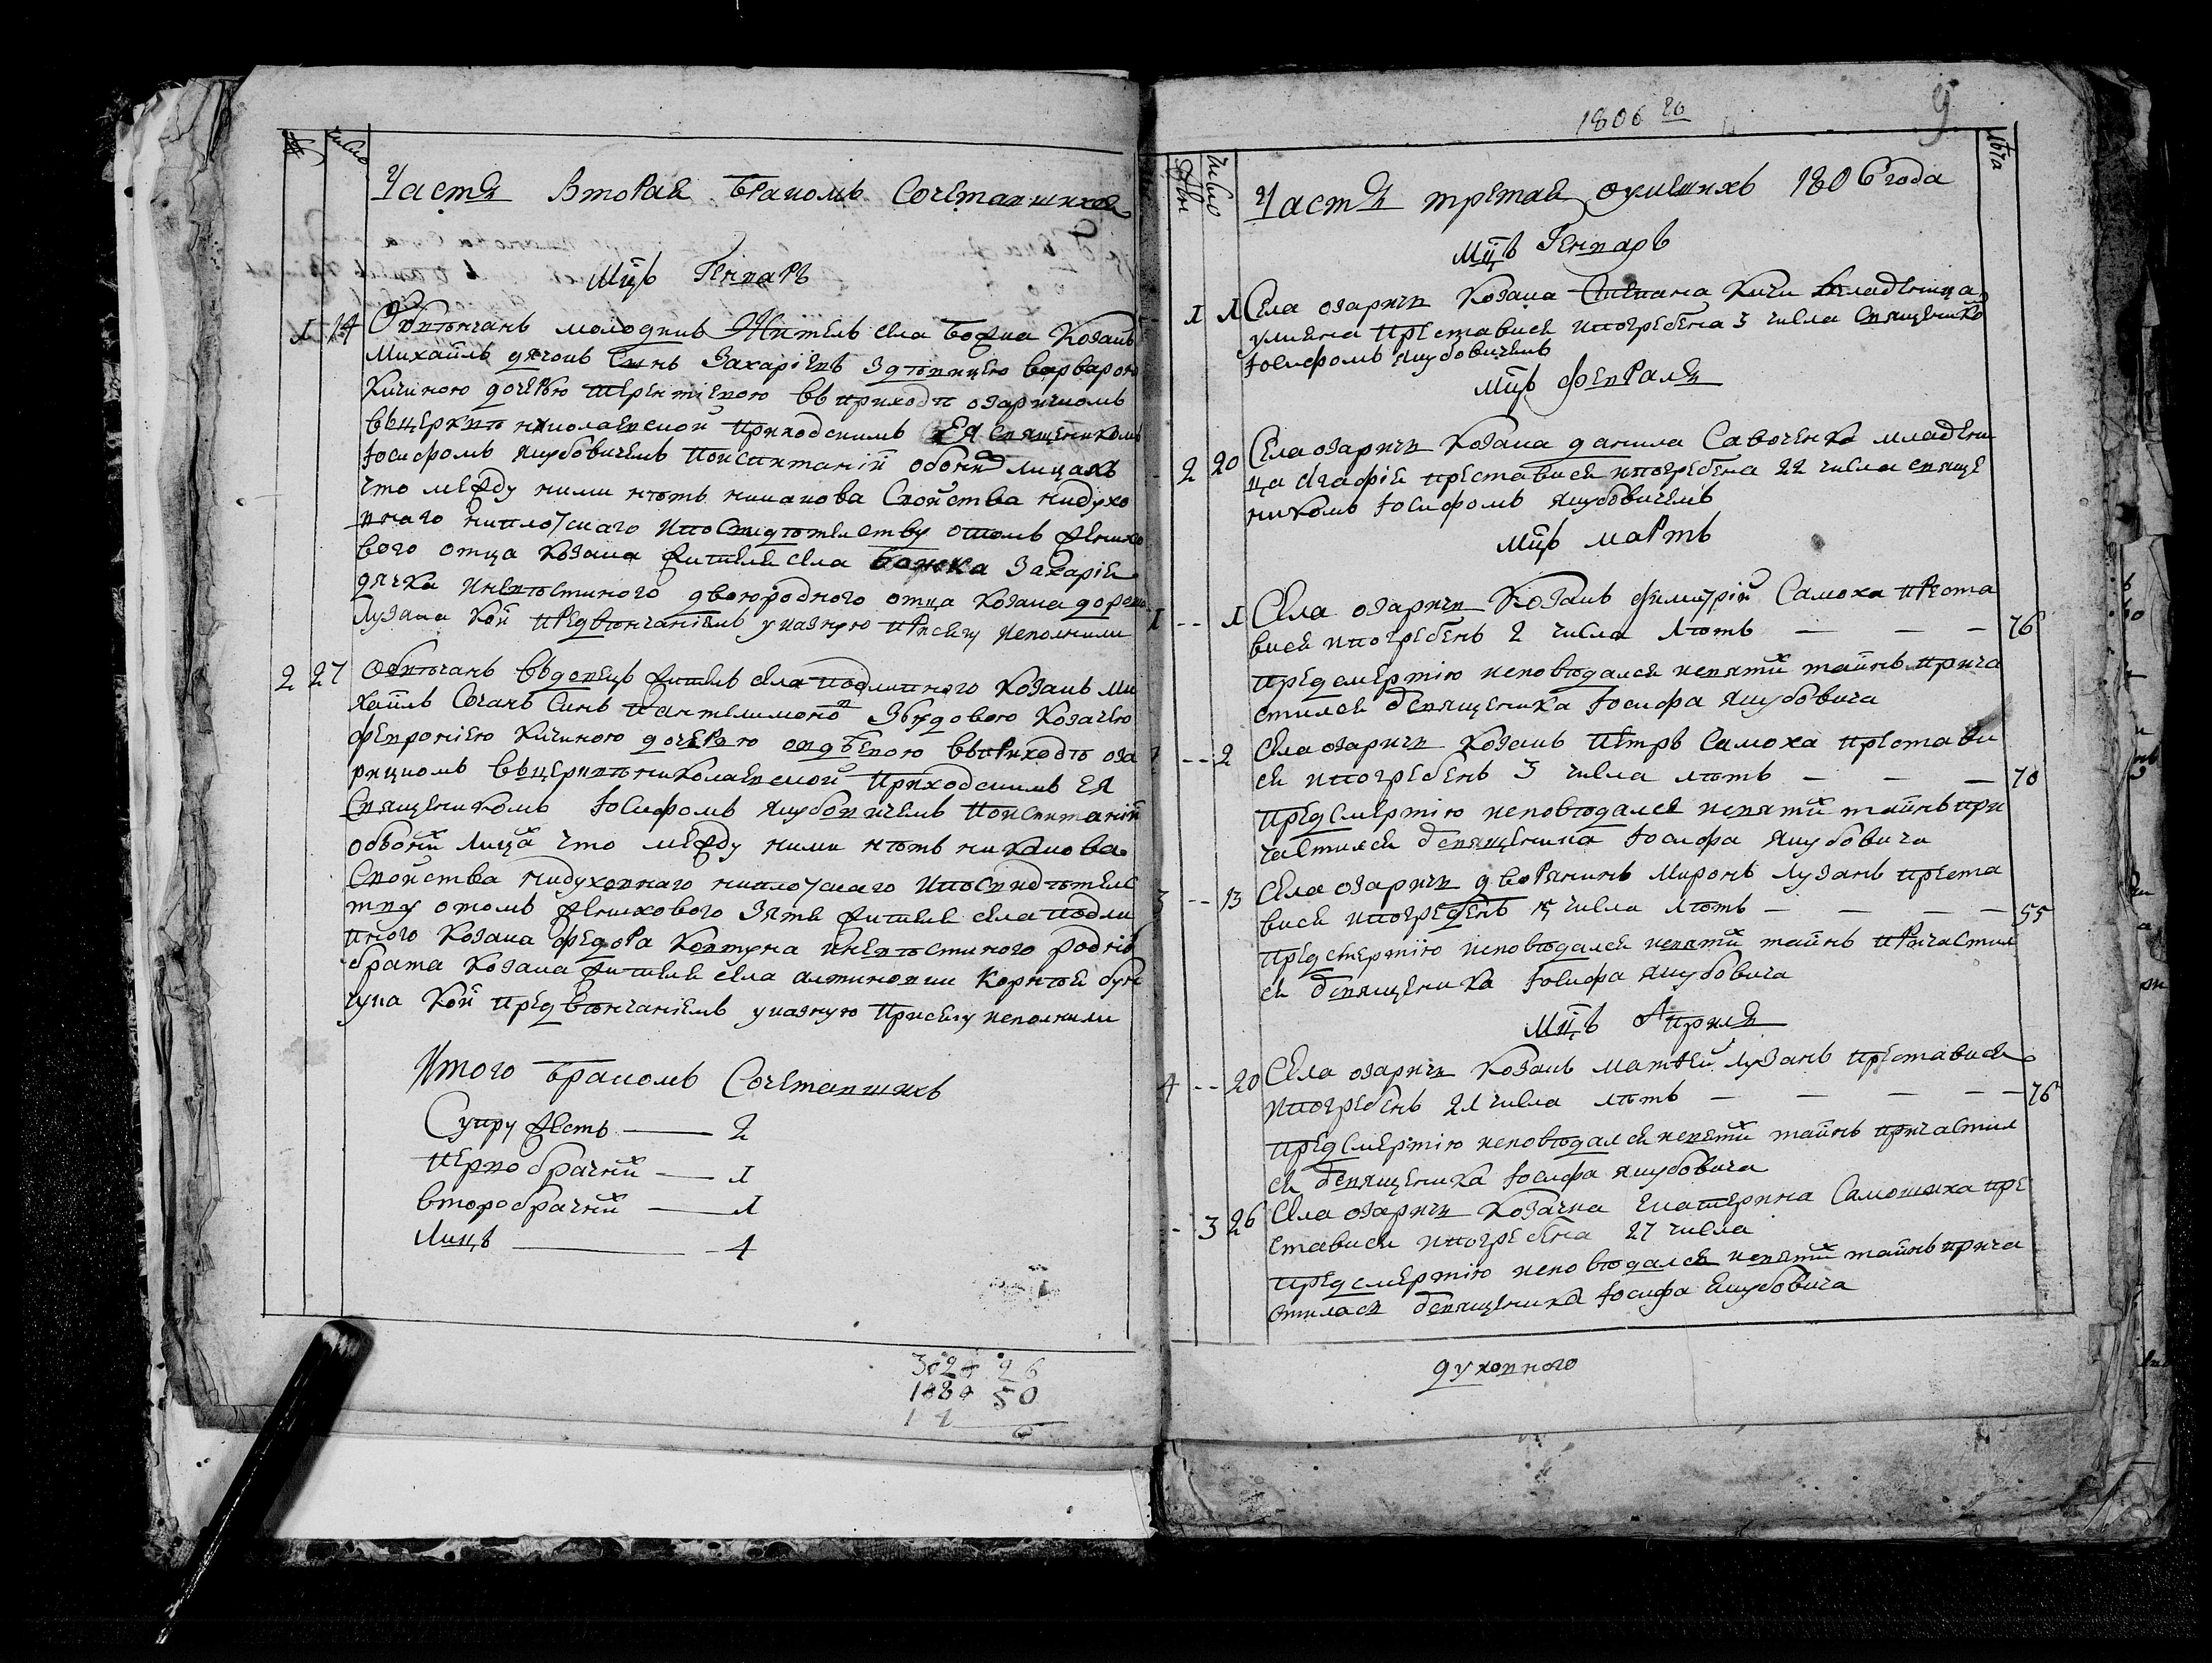 число
Частя Вторая бракомъ Сочетавшихся
Мцъ Генваръ
1 14 Обвѣнчанъ молодикъ Житель села Божка Козакъ
Михаилъ дячокъ Синъ Захаріевъ Здѣвицею варварою
Кичиною дочерю Терентіевою въ приходѣ озаричкомъ
въцерквѣ николаевской Приходскимъ ЕЯ священикомъ
Іосифомъ Якубовичемъ Поиспитаній обоихъ лицахъ
что между ними нѣтъ никакова Свойства нидухо
внаго ниплоцкаго ипосвидѣтелству отомъ женихо
вого отца козака жителя села Божка Захаріи
дячка иневѣстиного двоюродного отца козака
Лузана Кой предвѣнчаніемъ указную присягу исполнили
2 27 Обвѣчанъ вдовецъ житель села подлипного Козакъ Ми
хаилъ Сачанъ Синъ Пантелимоновъ Звдовою Козачею
февроніею Кичиною дочерю въ приходѣ оза
ричкомъ въцерквѣ николаевской Приходскимъ ЕЯ
Священикомъ Іосифомъ Якубовичемъ Поиспитаній
обоихъ лицахъ что между ними нѣтъ никакова
Свойства нидуховнаго ниплоцкаго ипосвидѣтелс
тву отомъ женихового Зятя жителя села подли
пного козака федора Ковтуна иневѣстиного родного
брата козака жителя села алтиновки Корнѣя бун
чука Кой предвѣнчаніемъ указную Присягу исполнили
Итого бракомъ Сочетавшихъ
Супружествъ — 2
первобрачнихъ — 1
второбрачнихъ — 1
Лицъ — 4
302 26
180 50
1806 го
9
число
лѣта
Частя третая умешихъ 1806 года
Мцъ Генваръ
1 1 Села озаричи Козака Степана Кичи младеница
улияна Преставися ипогребена 3 числа Священико
Іосифомъ Якубовичемъ
Мцъ февраля
2 20 Села озаричи Козака данила Савоченка младени
ца Агафія преставися ипогребена 22 числа свяще
никомъ Іосифомъ Якубовичемъ
Мцъ мартъ
1 -- 1 Села озаричи Козакъ димитрій Самоха преста
вися ипогребенъ 2 числа лѣтъ — — — 76
предсмертію исповѣдался исвятихъ таинъ прича
стился Священика Іосифа Якубовича
-- 2 Села озаричи Козакъ Петръ Самоха престави
ся ипогребенъ 3 числа лѣтъ — — — 70
предсмертію исповѣдался исвятихъ таинъ при
частился Священика Іосифа Якубовича
3 -- 13 Села озаричи дворянинъ Миронъ Лузанъ преста
вися ипогребенъ 15 числа лѣтъ — — — — 55
предсмертію исповѣдался исвятихъ таинъ причастил
ся Священика Іосифа Якубовича
Мцъ Априля
4 -- 20 Села озаричи Козакъ матѳей Лузанъ преставися
ипогребенъ 21 числа лѣтъ — — — — 76
предсмертію исповѣдался исвятихъ таинъ причастил
ся Священика Іосифа Якубовича
- 3 26 Села озаричи Козачка Екатерина Самошиха пре
ставися ипогребена 27 числа
предсмертію исповѣдалася исвятихъ таинъ прича
стилася Священика Іосифа Якубовича
духовного